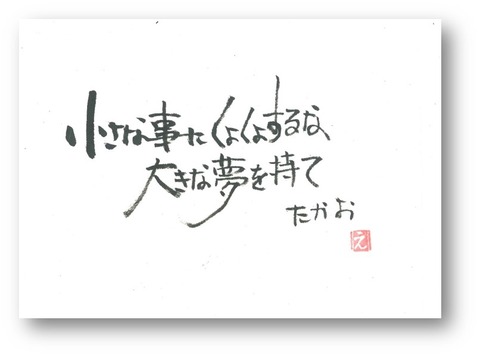 小さな事にくよくよするな、
大きな夢を持て
たかお
え